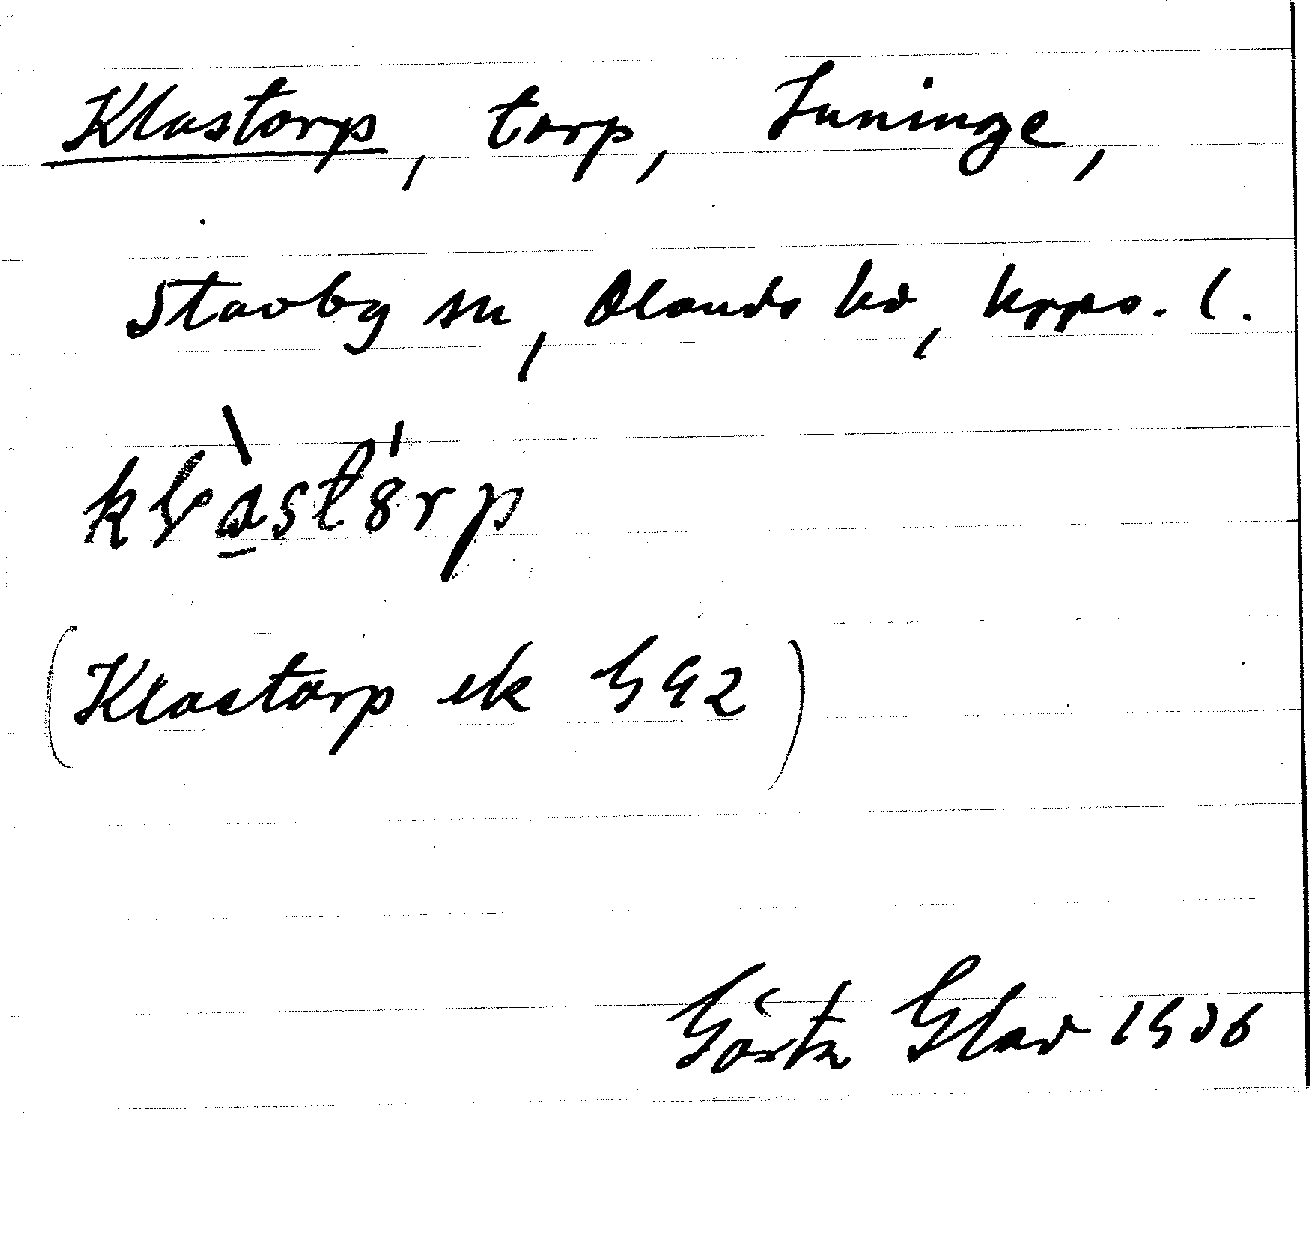 Klastorp, torp, Juninge,
Stavby sn, Olands hd, Upps. l.
klàstórp
(Klastorp ek G92)
Gösta Glad 1936